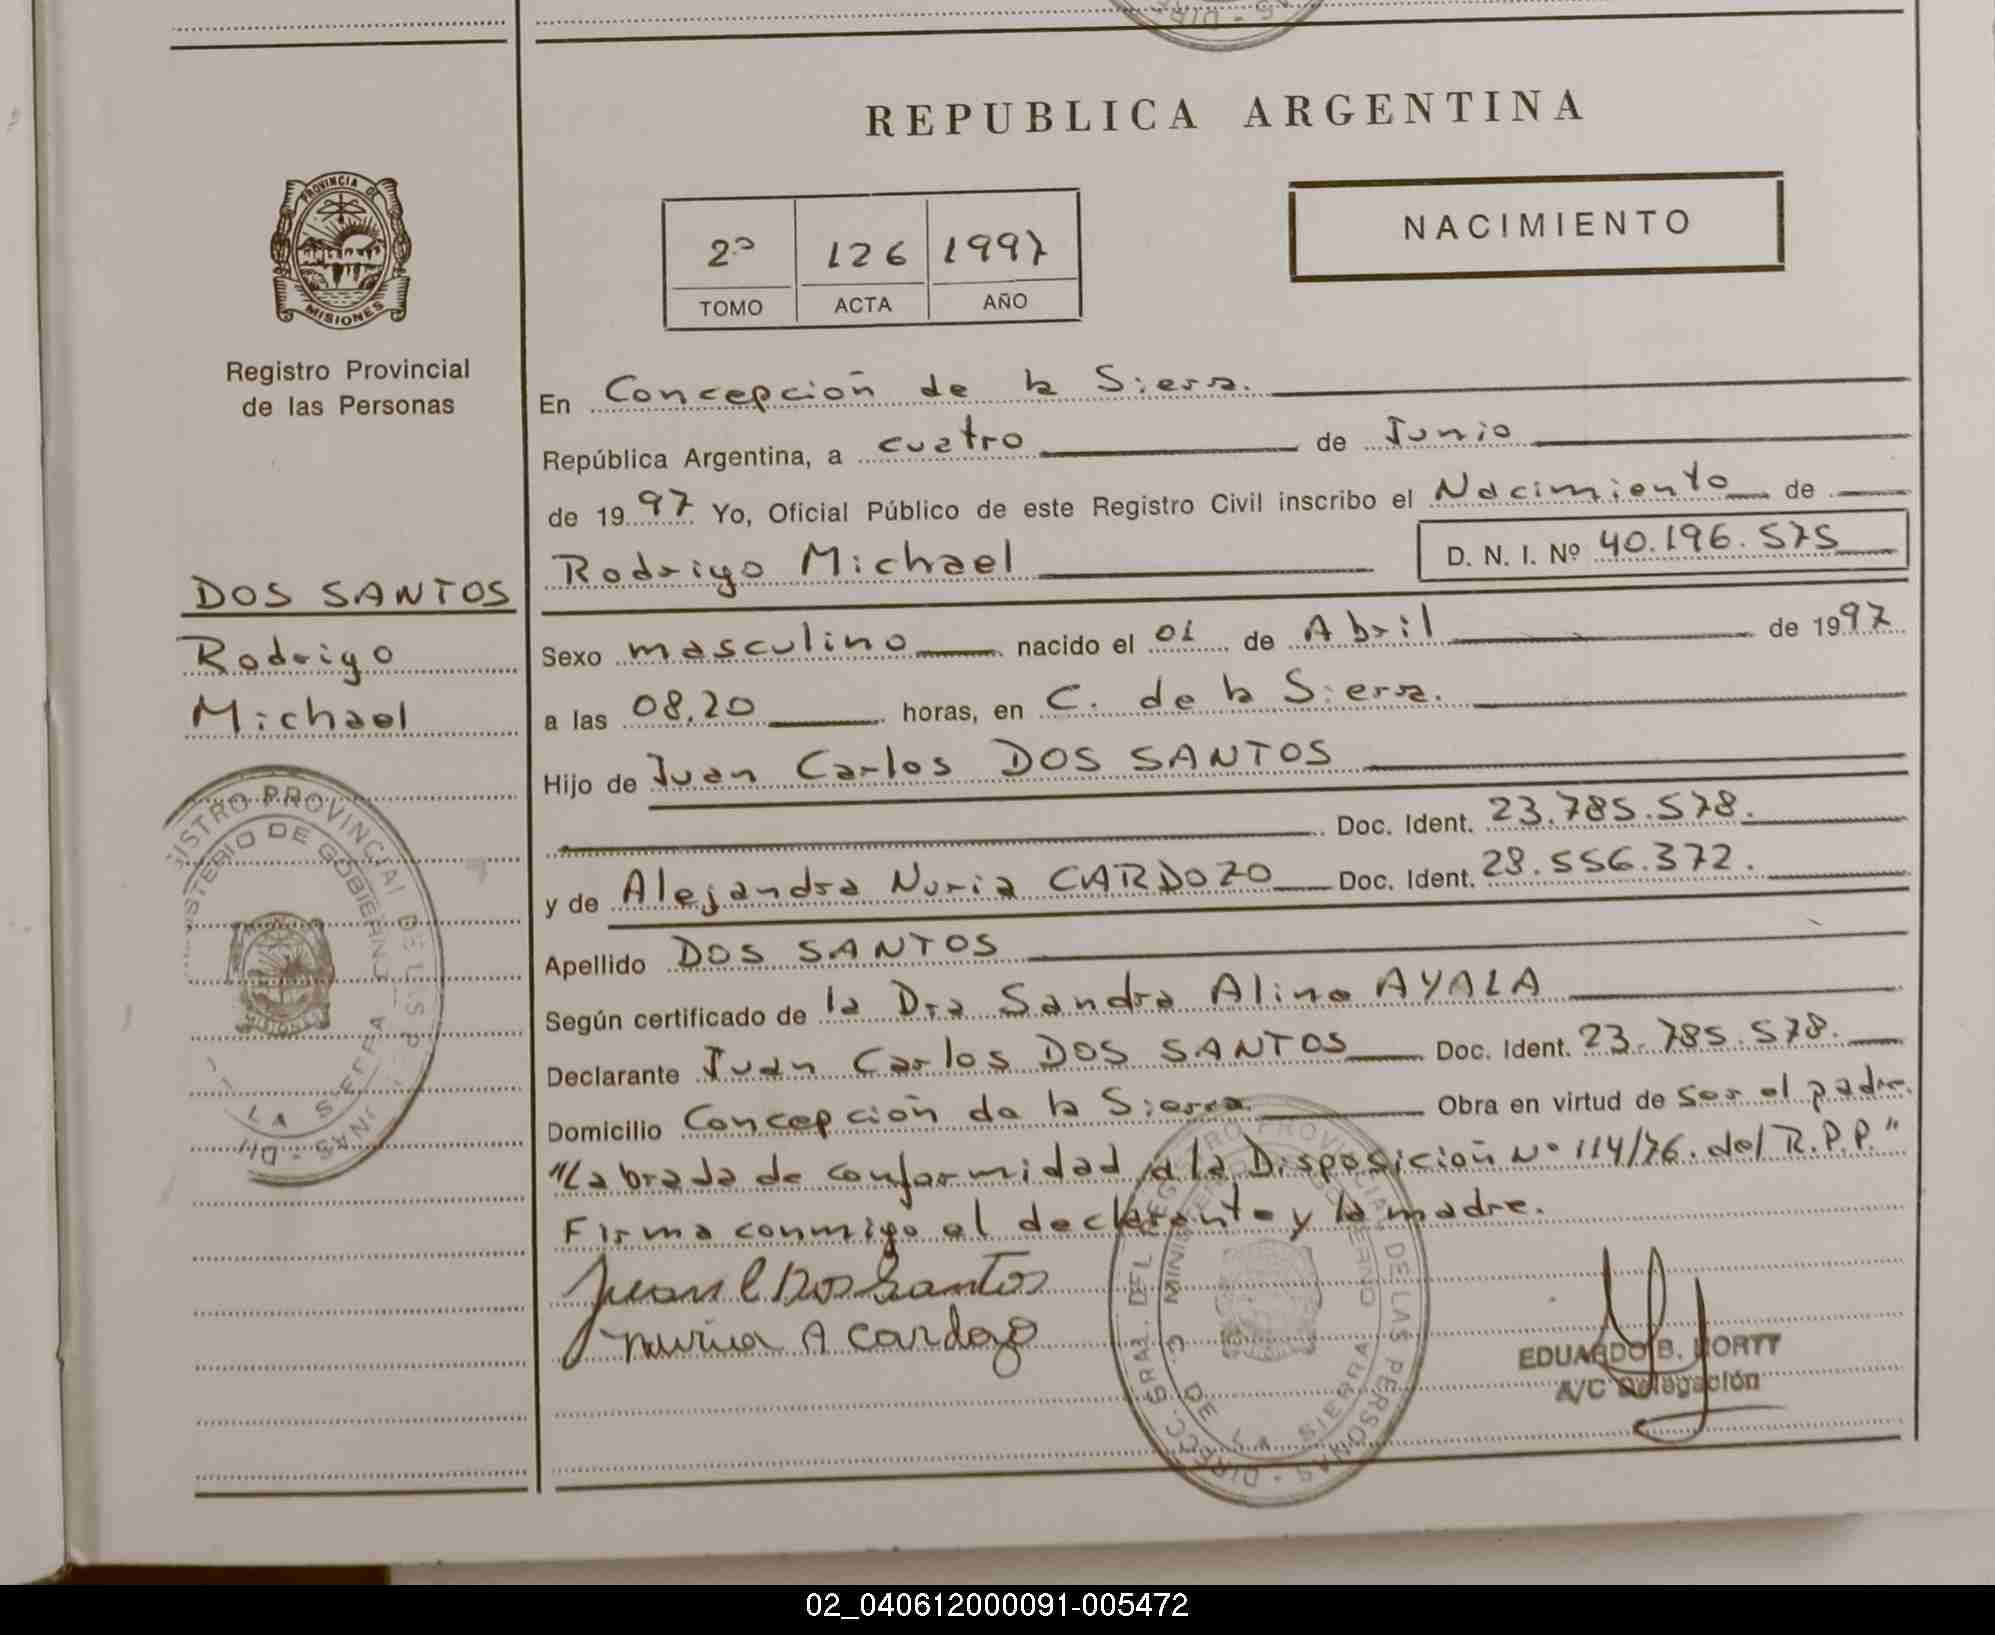 REPUBLICA ARGENTINA
NACIMIENTO
2º 126 1997
TOMO ACTA AÑO
PROVINCIA DE
MISIONES
Registro Provincial
de las Personas
DOS SANTOS
Rodrigo
Michael
En Concepción de la Sierra.
República Argentina, a cuatro de Junio
de 1997 Yo, Oficial Público de este Registro Civil inscribo el Nacimiento de
Rodrigo Michael D. N. I. Nº 40.196.575
Sexo masculino nacido el 01 de Abril de 1997
a las 08,20 horas, en C. de la Sierra.
Hijo de Juan Carlos DOS SANTOS
Doc. Ident. 23.785.578.
y de Alejandra Nuria CARDOZO Doc. Ident. 28.556.372.
Apellido DOS SANTOS
Según certificado de la Dra Sandra Alino AYALA
Declarante Juan Carlos DOS SANTOS Doc. Ident. 23.785.578.
Domicilio Concepción de la Sierra Obra en virtud de ser el padre.
"Labrada de conformidad a la Disposición Nº 114/76. del R.P.P."
Firma conmigo el declarante y la madre.
Juan C Dos Santos
Nuria A Cardozo
EDUARDO B.
A/C Delegación
DIRECC. GRAL. DEL REGISTRO PROVINCIAL DE LAS PERSONAS
MINISTERIO DE GOBIERNO
C. DE LA SIERRA
02_040612000091-005472